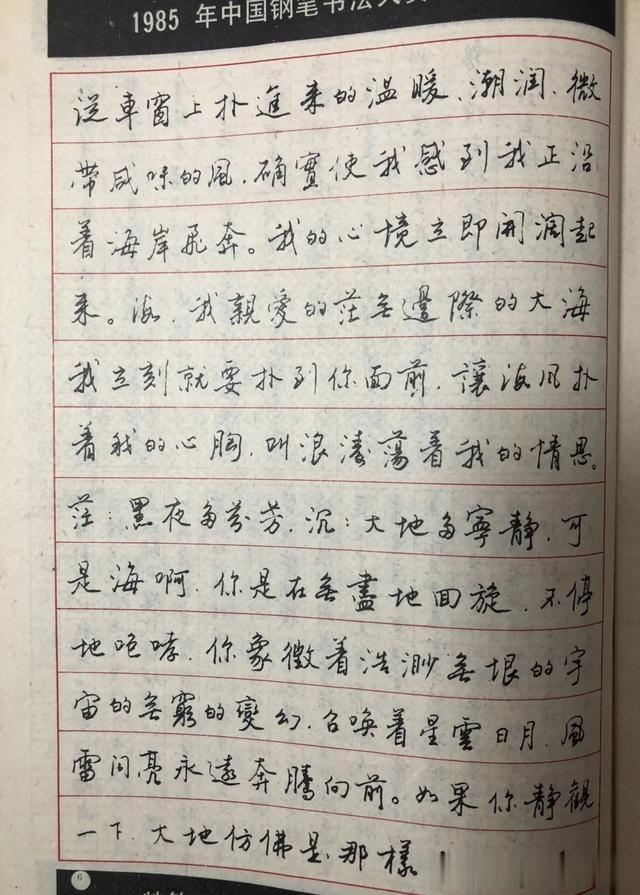 1985 年中国钢笔书法大
從車窗上扑進来的温暖、潮润、微
带咸味的風,确實使我感到我正沿
着海岸飛奔。我的心境立即開阔起
来。海,我親愛的茫無邊際的大海
我立刻就要扑到你面前,讓海風扑
着我的心胸,叫浪濤蕩着我的情思。
茫:黑夜多芬芳,沉:大地多寧静,可
是海啊,你是在無盡地回旋,不停
地咆哮,你象徵着浩渺無垠的宇
宙的無窮的變幻,召唤着星雲日月,風
雷闪亮永遠奔騰向前。如果你静觀
一下,大地仿佛是那樣
6